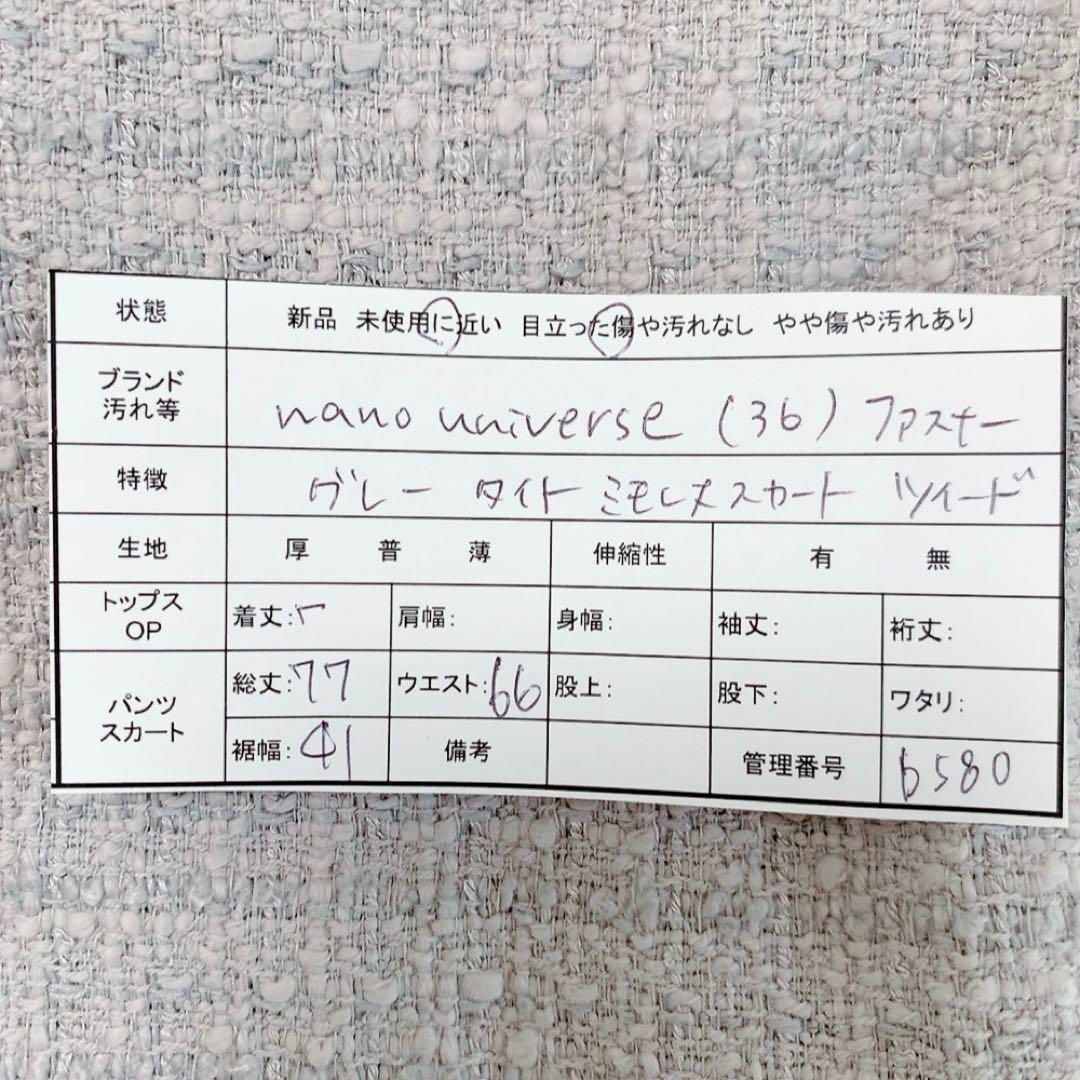 状態 新品 未使用に近い 目立った傷や汚れなし やや傷や汚れあり
ブランド
汚れ等 nano universe (36) ファスナー
特徴 グレー タイト ミモレ丈スカート ツイード
生地 厚 普 薄 伸縮性 有 無
トップス
OP 着丈: 肩幅: 身幅: 袖丈: 裄丈:
パンツ
スカート 総丈:77 ウエスト:66 股上: 股下: ワタリ:
裾幅:41 備考 管理番号 6580